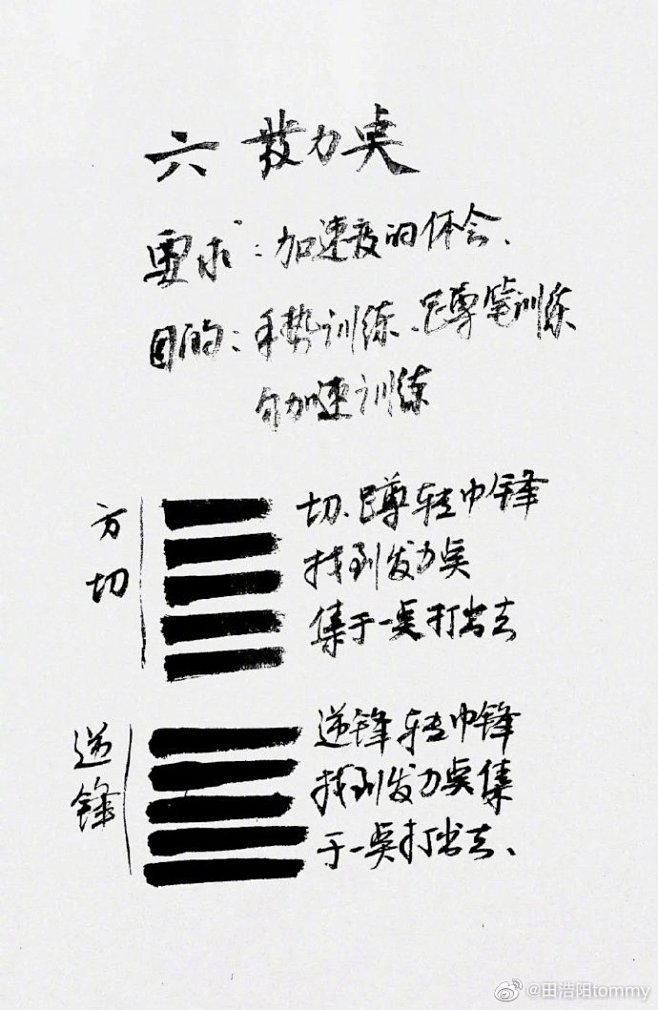 六 發力点
要求:加速度的体会、
目的:手势训练、蹲笔训练
匀加速训练
方切
切、蹲转中锋
找到发力点
集于一点打出去
逆锋
逆锋转中锋
找到发力点集
于一点打出去、
@田浩阳tommy